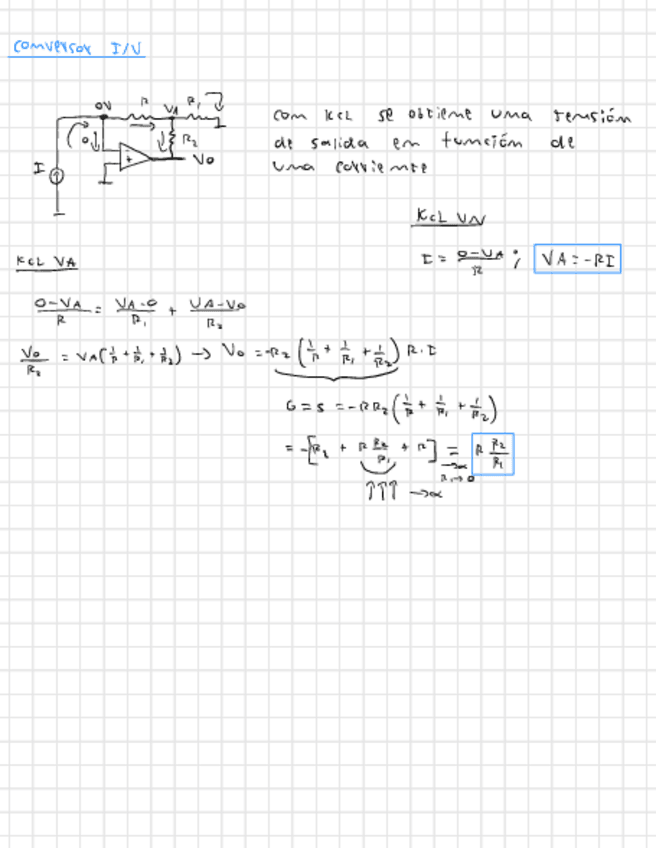 conversor I/V
0V R VA R1
0 R2
I Vo
con KCL se obtiene una tensión
de salida en función de
una corriente
KCL VN
I = (0-VA)/R ; VA = -RI
KCL VA
(0-VA)/R = (VA-0)/R1 + (VA-Vo)/R2
Vo/R2 = VA(1/R + 1/R1 + 1/R2) → Vo = -R2 (1/R + 1/R1 + 1/R2) R·I
G = S = -R R2 (1/R + 1/R1 + 1/R2)
= -[R2 + R R2/R1 + R] = R R2/R1
→∞
R1→0
↑↑↑ →∞